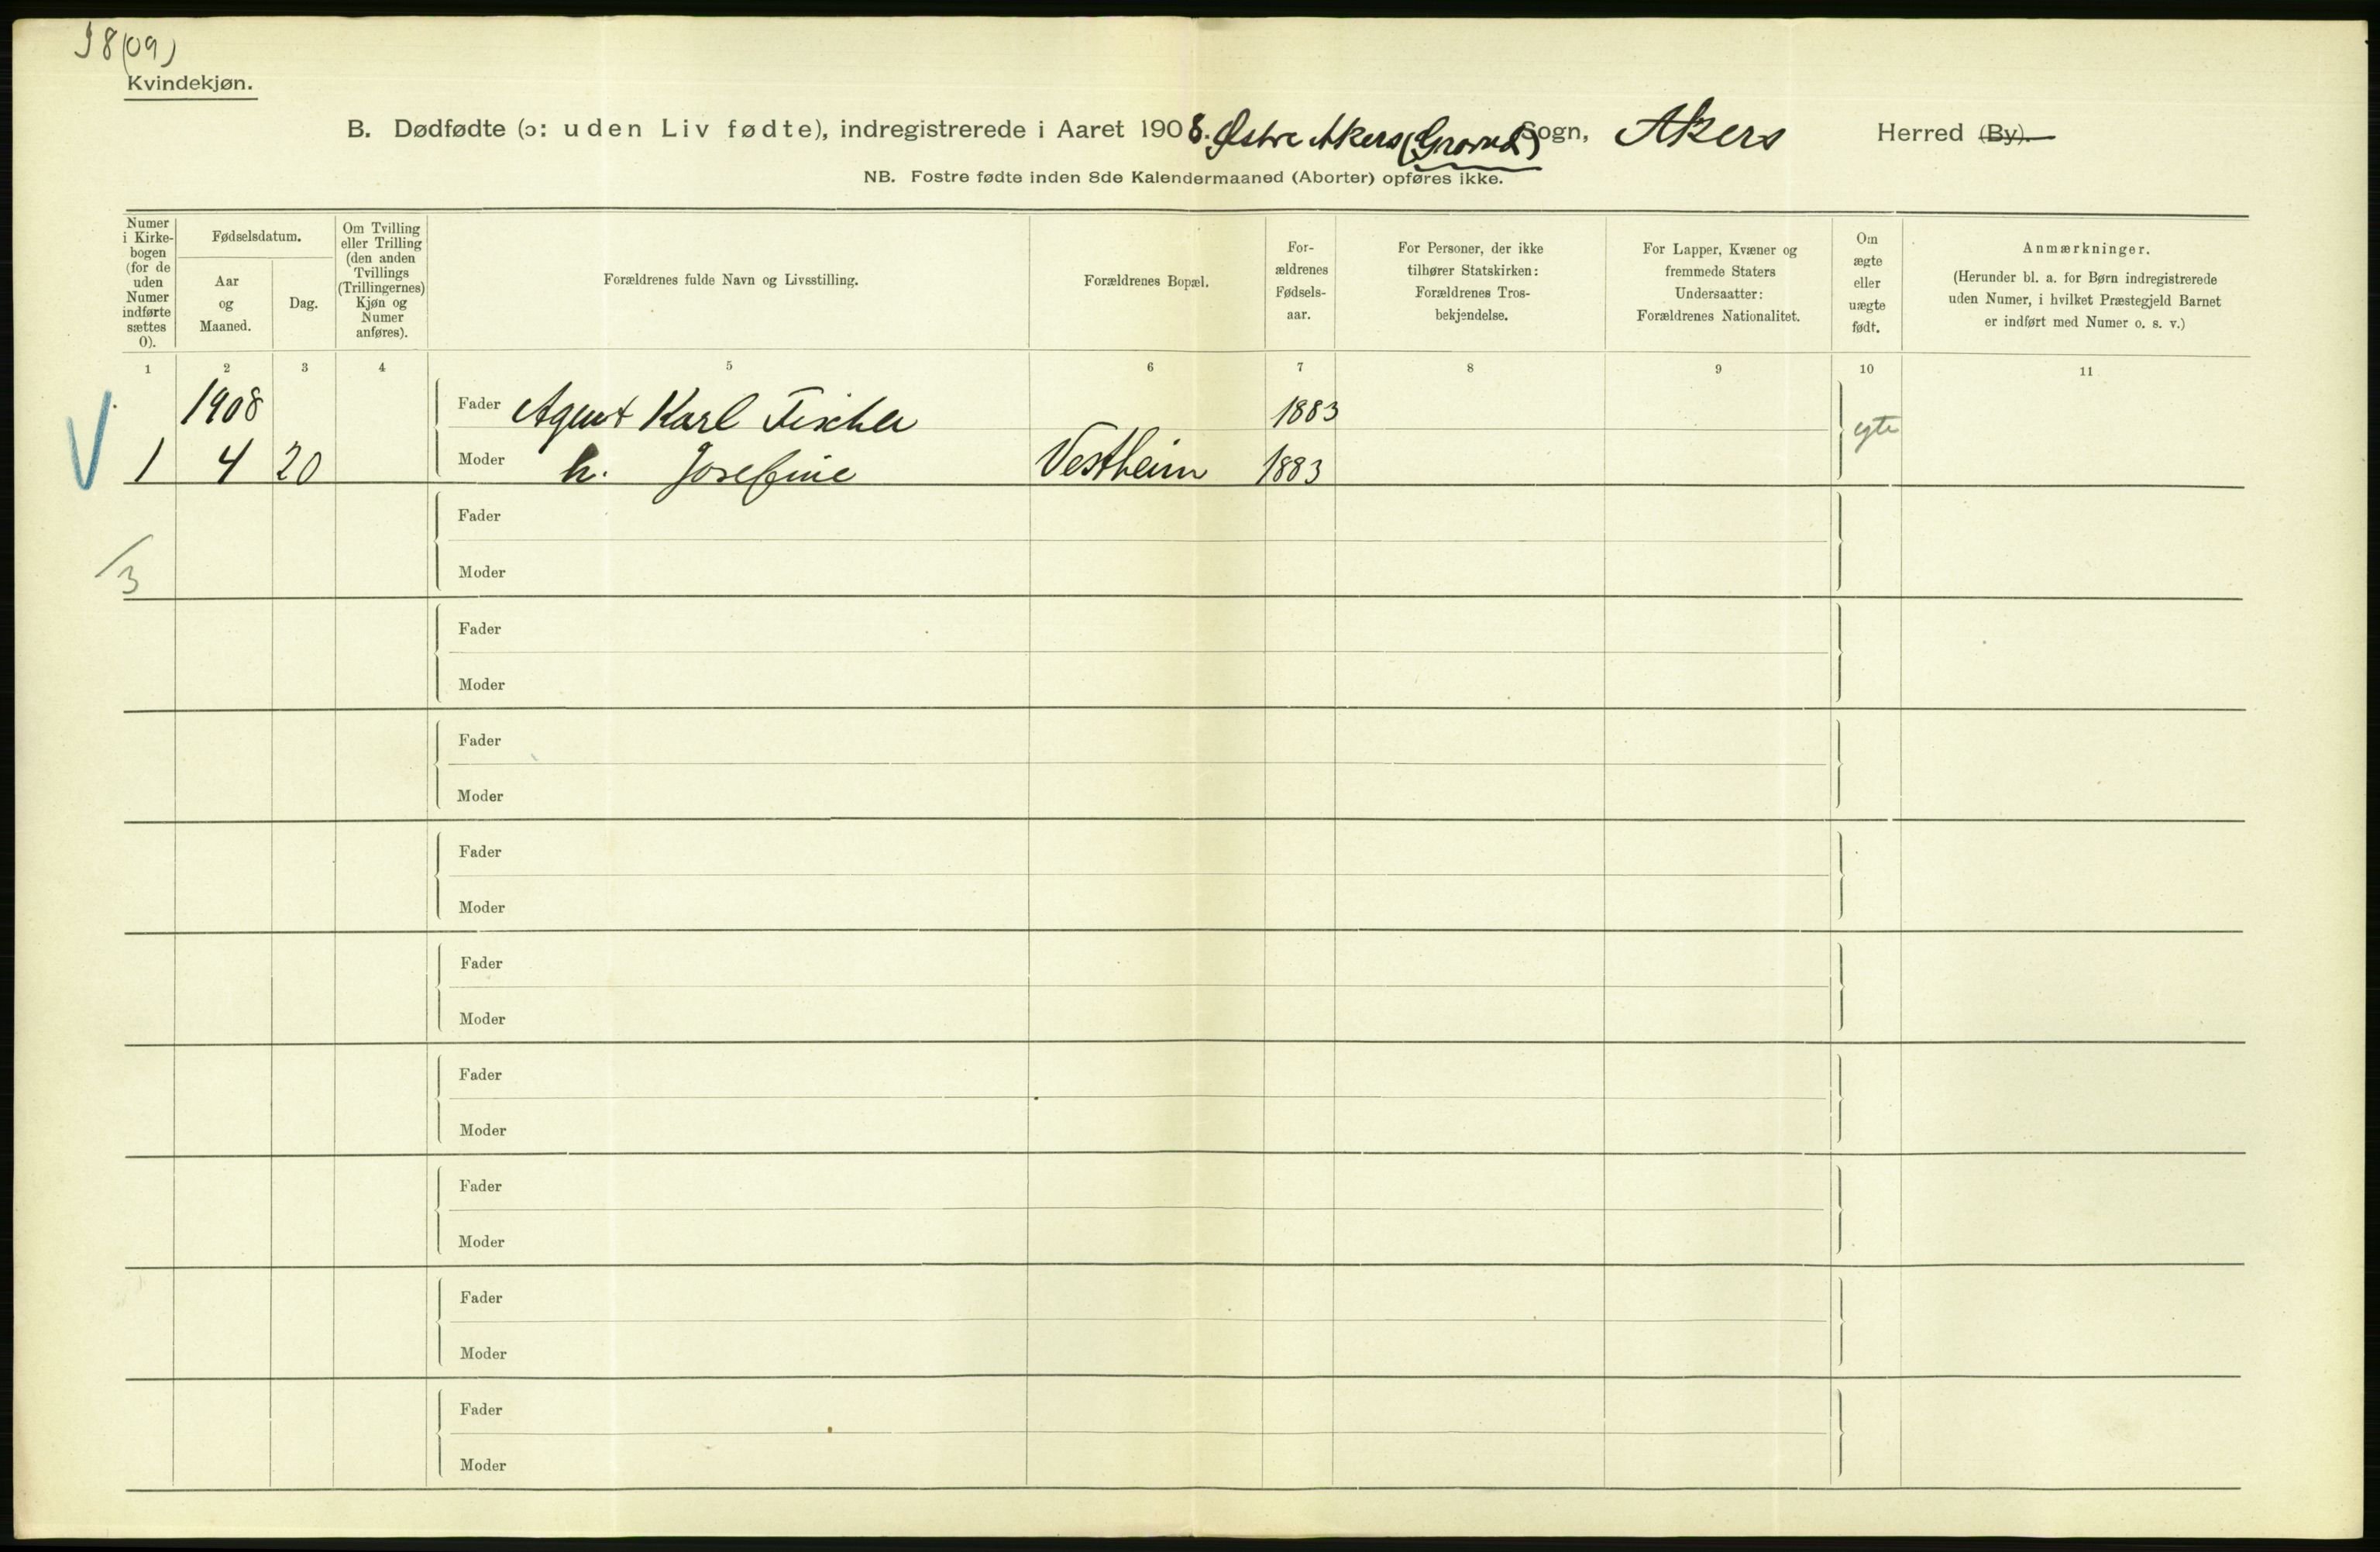 J 8(09)
Kvindekjøn.
B. Dødfødte (ɔ: uden Liv fødte), indregistrerede i Aaret 1908. Østre Akers (Grorud) Sogn, Akers Herred (By).
NB. Fostre fødte inden 8de Kalendermaaned (Aborter) opføres ikke.
Numer i Kirke-bogen (for de uden Numer indførte sættes 0).
Fødselsdatum.
Aar og Maaned.
Dag.
Om Tvilling eller Trilling (den anden Tvillings (Trillingernes) Kjøn og Numer anføres).
Forældrenes fulde Navn og Livsstilling.
Forældrenes Bopæl.
For-ældrenes Fødsels-aar.
For Personer, der ikke tilhører Statskirken: Forældrenes Tros-bekjendelse.
For Lapper, Kvæner og fremmede Staters Undersaatter: Forældrenes Nationalitet.
Om ægte eller uægte født.
Anmærkninger.
(Herunder bl. a. for Børn indregistrerede uden Numer, i hvilket Præstegjeld Barnet er indført med Numer o. s. v.)
1 2 3 4 5 6 7 8 9 10 11
1908 Fader Agent Karl Fischer 1883 egte
V 1 4 20 Moder h. Josefine Vestheim 1883
Fader
/3 Moder
Fader
Moder
Fader
Moder
Fader
Moder
Fader
Moder
Fader
Moder
Fader
Moder
Fader
Moder
Fader
Moder